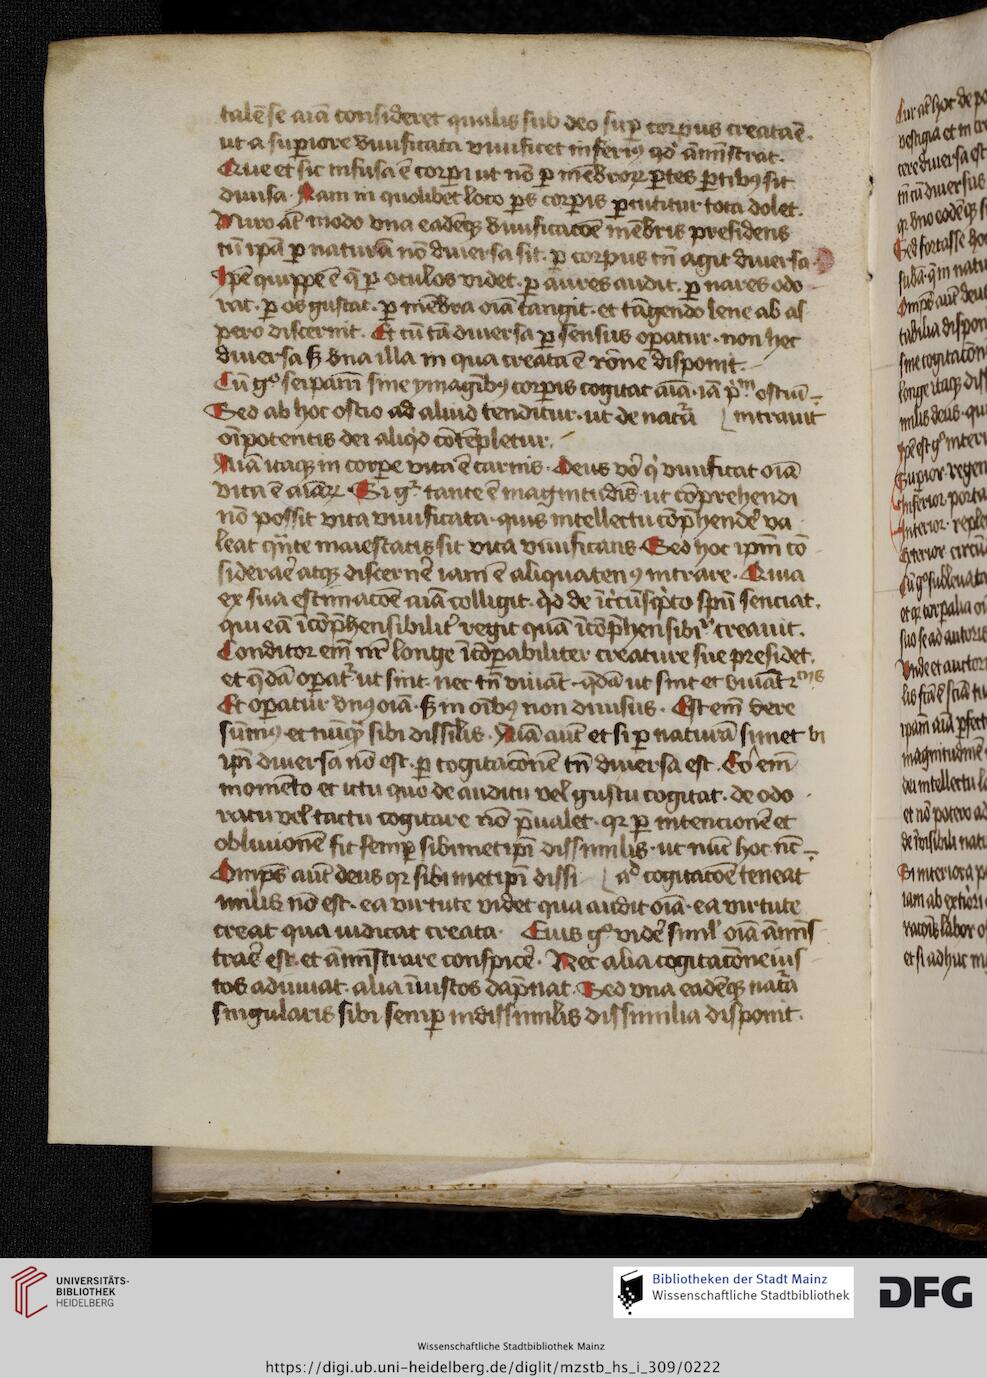 talē se aīa consideret qualis sub deo sup̄ corpus creata ē.
ut a supiore viuificata viuificet inferiꝰ qd' āmīstrat.
Que et sic infusa ē corpi ut nō p mēbroꝝ ptes ptibꝫ sit
diuisa. Nam in quolibet loco ps corpis pcutitur tota dolet.
Miro at modo vna eadēqꝫ viuificacōe mēbris presidens
cū ipā p naturā nō diuersa sit. p corpus tn̄ agit diuersa
Ipē quippe ē q̄ p oculos videt. p aures audit. p nares odo
rat. p os gustat. p mēbra oīa tangit. et tāgendo lene ab as
pero discernit. Et cū tā diuersa p sensus opatur. non hec
diuersa sꝫ vna illa in qua creata ē rōne disponit.
Cū gº seipam sine ymagībꝫ corpis cogitat aīa. iā p'm ostiū
Sed ab hoc ostio ad aliud tenditur. ut de nat'a intrauit
oīpotentis dei aliqd cōtēpletur.
Aīa itaqꝫ in corpe vita ē carnis. Deus vº q' viuificat oīa
vita ē aīaꝝ. Si gº tante ē magnitudīs ut cōprehendi
nō possit vita viuificata. quis intellectu cōp'hende' va
leat q̄nte maiestatis sit vita viuificans. Sed hoc ipm cō
siderar̄e atqꝫ discerne' iam ē aliquatenꝰ intrare. Quia
ex sua estimacōe aīa colligit. qd de īc'cūsc'pto spū senciat.
qui eā īcōp'hensibilit' regit quā īcōp'hensibil'r creauit.
Conditor em̄ nr̄ longe īcōpabiliter creature sue presidet.
et q̄dā opat' ut sint. nec tn̄ viuāt. q̄dā ut sint et viuāt
Et opatur vn̄ꝰ oīa. sꝫ in oībꝫ non diuisus. Est em̄ vere
sūmꝰ et nūqꝫ sibi dissilis. Aīā aūt et si p naturā simet bi
ipi diuersa nō est. p cogitacōnē tn̄ diuersa est. Eo em̄
momēto et ictu quo de auditu vel gustu cogitat. de odo
ratu vel tactu cogitare nō p̄ualet. qꝛ p intencionē et
obliuionē fit semp sibimetipi dissimilis. ut nūc hoc nc̄
Omps aūt deus qꝛ sibimetipi dissi a' cogitacōe teneat
milis nō est. ea virtute videt qua audit oīa. ea virtute
creat qua iudicat creata. Eius gº vide' simul oīa āmīs
trar̄e est. et āmīstrare conspice'. Nec alia cogitacōne ius
tos adiuuat. alia īiustos dāpnat. Sed vna eadēqꝫ nat'a
singularis sibi semp indissimilis dissimilia disponit.
UNIVERSITÄTS-
BIBLIOTHEK
HEIDELBERG
Bibliotheken der Stadt Mainz
Wissenschaftliche Stadtbibliothek
DFG
Wissenschaftliche Stadtbibliothek Mainz
https://digi.ub.uni-heidelberg.de/diglit/mzstb_hs_i_309/0222